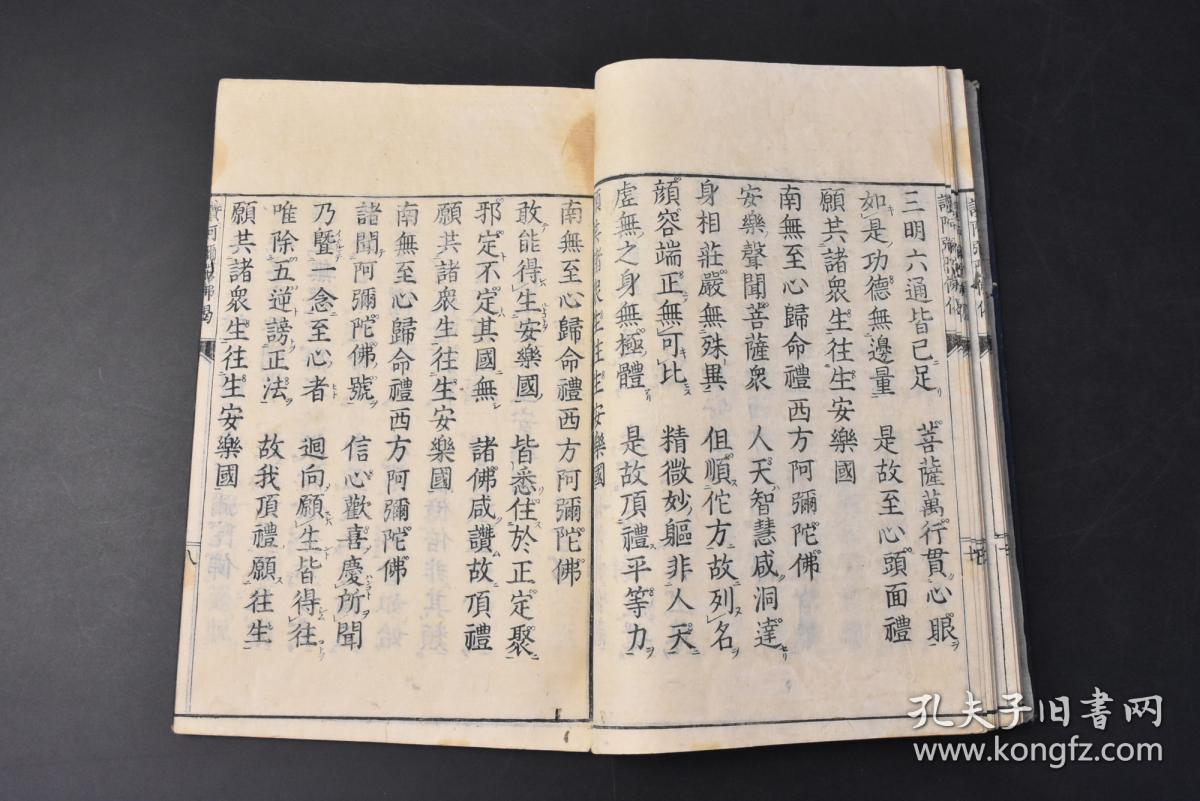 三明六通皆已足　菩薩萬行貫心眼
如是功德無邊量　是故至心頭面禮
願共諸衆生往生安樂國
南無至心歸命禮西方阿彌陀佛
安樂聲聞菩薩衆　人天智慧咸洞達
身相莊嚴無殊異　但順佗方故列名
顔容端正無可比　精微妙軀非人天
虛無之身無極體　是故頂禮平等力
願共諸衆生往生安樂國
南無至心歸命禮西方阿彌陀佛
敢能得生安樂國　皆悉住於正定聚
邪定不定其國無　諸佛咸讚故頂禮
願共諸衆生往生安樂國
南無至心歸命禮西方阿彌陀佛
諸聞阿彌陀佛號　信心歡喜慶所聞
乃曁一念至心者　迴向願生皆得往
唯除五逆謗正法　故我頂禮願往生
願共諸衆生往生安樂國
讚阿彌陀佛偈
八
孔夫子旧書网
www.kongfz.com